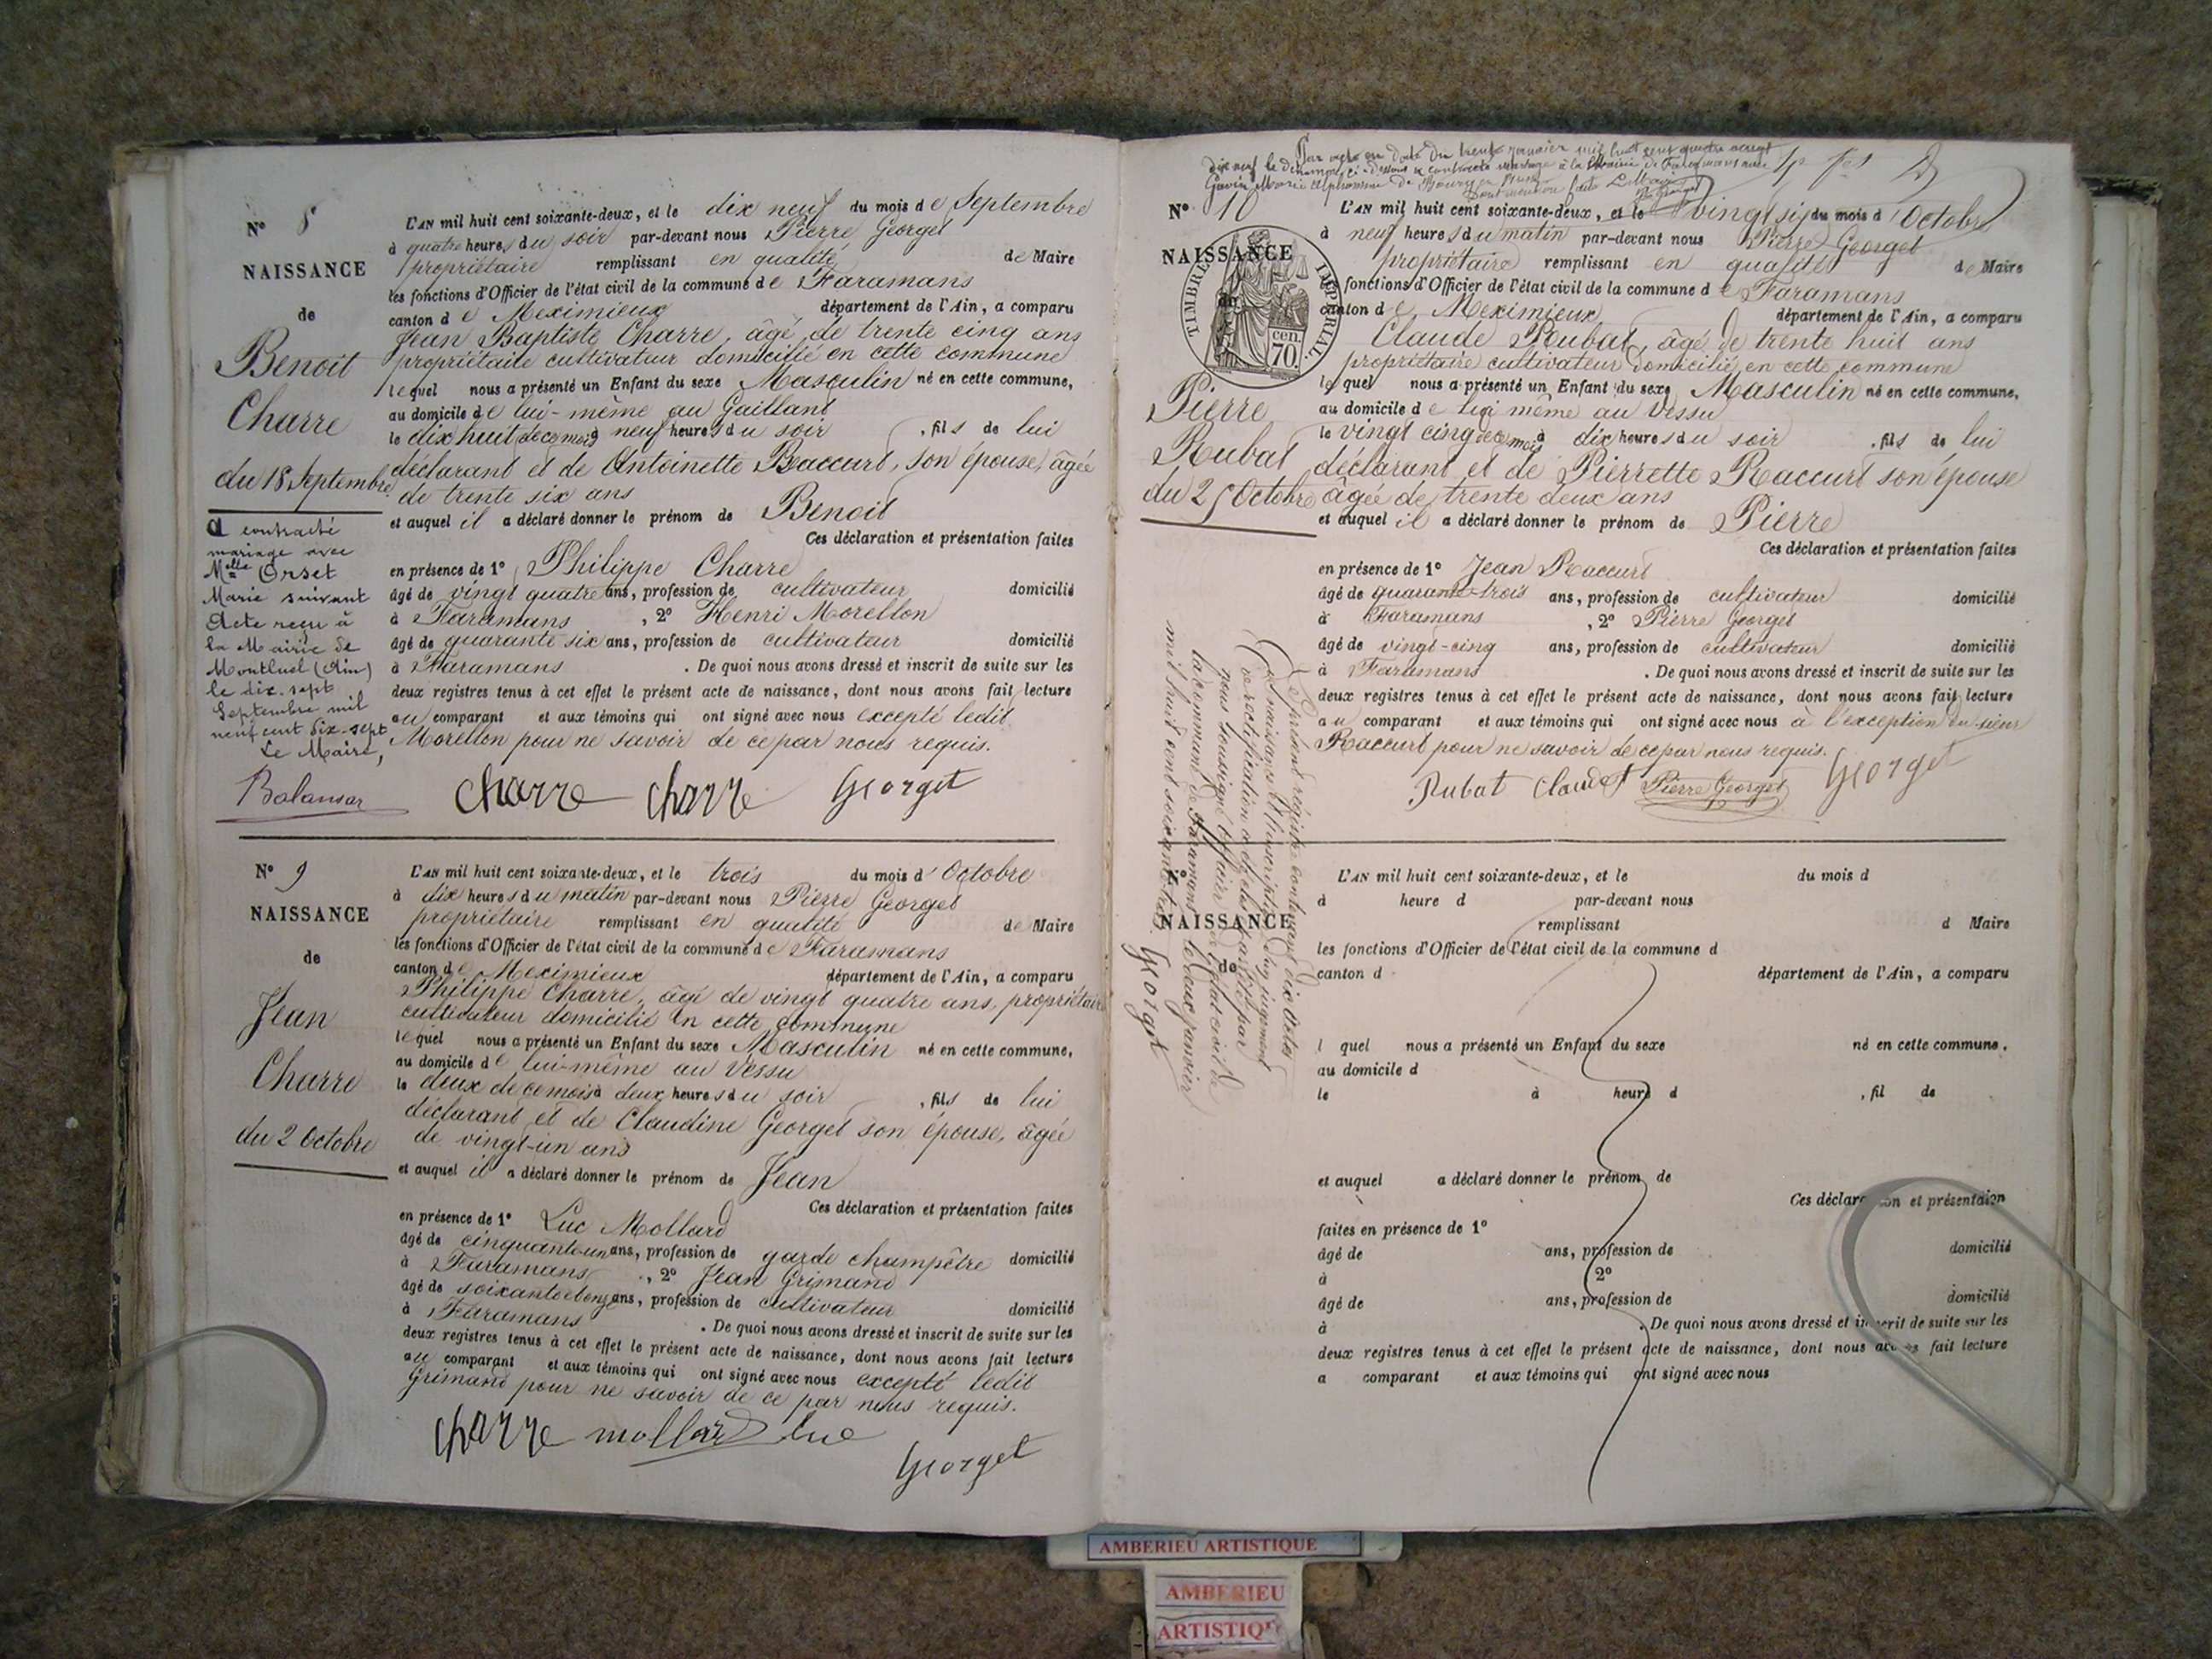 N° 8
NAISSANCE
de
Benoit
Charre
du 18 Septembre
A contracté
mariage avec
Melle Orset
Marie suivant
Acte reçu à
la Mairie de
Montluel (Ain)
le dix-sept
Septembre mil
neuf cent dix-sept
Le Maire,
L'AN mil huit cent soixante-deux, et le dix neuf du mois de Septembre
à quatre heures du soir par-devant nous Pierre Georget
propriétaire remplissant en qualité de Maire
les fonctions d'Officier de l'état civil de la commune de Faramans
canton de Meximieux département de l'Ain, a comparu
Jean Baptiste Charre, âgé de trente cinq ans
propriétaire cultivateur domicilié en cette commune
lequel nous a présenté un Enfant du sexe Masculin né en cette commune,
au domicile de lui-même au Gaillant
le dix huit de ce mois à neuf heures du soir , fils de lui
déclarant et de Antoinette Raccurt, son épouse, âgée
de trente six ans
et auquel il a déclaré donner le prénom de Benoit
Ces déclaration et présentation faites
en présence de 1° Philippe Charre
âgé de vingt quatre ans, profession de cultivateur domicilié
à Faramans , 2° Henri Morellon
âgé de quarante six ans, profession de cultivateur domicilié
à Faramans . De quoi nous avons dressé et inscrit de suite sur les
deux registres tenus à cet effet le présent acte de naissance, dont nous avons fait lecture
au comparant et aux témoins qui ont signé avec nous excepté ledit
Morellon pour ne savoir de ce par nous requis.
Charre Charre Georget
N° 9
NAISSANCE
de
Jean
Charre
du 2 Octobre
L'AN mil huit cent soixante-deux, et le trois du mois d'Octobre
à dix heures du matin par-devant nous Pierre Georget
propriétaire remplissant en qualité de Maire
les fonctions d'Officier de l'état civil de la commune de Faramans
canton de Meximieux département de l'Ain, a comparu
Philippe Charre, âgé de vingt quatre ans, propriétaire
cultivateur domicilié en cette commune
lequel nous a présenté un Enfant du sexe Masculin né en cette commune,
au domicile de lui-même au Vessu
le deux de ce mois à deux heures du soir , fils de lui
déclarant et de Claudine Georget son épouse, âgée
de vingt-un ans
et auquel il a déclaré donner le prénom de Jean
Ces déclaration et présentation faites
en présence de 1° Luc Mollard
âgé de cinquante un ans, profession de garde champêtre domicilié
à Faramans , 2° Jean Grimand
âgé de soixante et onze ans, profession de cultivateur domicilié
à Faramans . De quoi nous avons dressé et inscrit de suite sur les
deux registres tenus à cet effet le présent acte de naissance, dont nous avons fait lecture
au comparant et aux témoins qui ont signé avec nous excepté ledit
Grimand pour ne savoir de ce par nous requis.
Charre mollard luc
Georget
Par acte en date du trente janvier mil huit cent quatre vingt
dix neuf le dénommé ci-dessous a contracté mariage à la Mairie de Faramans avec
Marie Alphonsine de
Dont mention faite Le Maire
N° 10
NAISSANCE
de
TIMBRE IMPERIAL
70 cen.
Pierre
Rubat
du 25 Octobre
L'AN mil huit cent soixante-deux, et le vingt six du mois d'Octobre
à neuf heures du matin par-devant nous Pierre Georget
propriétaire remplissant en qualité de Maire
fonctions d'Officier de l'état civil de la commune de Faramans
canton de Meximieux département de l'Ain, a comparu
Claude Rubat, âgé de trente huit ans
propriétaire cultivateur domicilié en cette commune
lequel nous a présenté un Enfant du sexe Masculin né en cette commune,
au domicile de lui même au Vessu
le vingt cinq de ce mois à dix heures du soir , fils de lui
déclarant et de Pierrette Raccurt son épouse
âgée de trente deux ans
et auquel il a déclaré donner le prénom de Pierre
Ces déclaration et présentation faites
en présence de 1° Jean Raccurt
âgé de quarante-trois ans, profession de cultivateur domicilié
à Faramans , 2° Pierre Georget
âgé de vingt-cinq ans, profession de cultivateur domicilié
à Faramans . De quoi nous avons dressé et inscrit de suite sur les
deux registres tenus à cet effet le présent acte de naissance, dont nous avons fait lecture
au comparant et aux témoins qui ont signé avec nous à l'exception du sieur
Raccurt pour ne savoir de ce par nous requis.
Rubat Claude Pierre Georget Georget
Le présent registre contenant dix actes
de naissances et l'inscription d'un jugement
de rectification a été clos et arrêté par
nous soussigné officier de l'état civil de
la commune de Faramans le deux janvier
mil huit cent soixante trois.
Georget
N°
NAISSANCE
de
L'AN mil huit cent soixante-deux, et le du mois d
à heure d par-devant nous
remplissant d Maire
les fonctions d'Officier de l'état civil de la commune d
canton d département de l'Ain, a comparu
l quel nous a présenté un Enfant du sexe né en cette commune.
au domicile d
le à heure d , fil de
et auquel a déclaré donner le prénom de
Ces déclaration et présentaion
faites en présence de 1°
âgé de ans, profession de domicilié
à 2°
âgé de ans, profession de domicilié
à . De quoi nous avons dressé et inscrit de suite sur les
deux registres tenus à cet effet le présent acte de naissance, dont nous avons fait lecture
a comparant et aux témoins qui ont signé avec nous
AMBERIEU ARTISTIQUE
AMBERIEU
ARTISTIQU